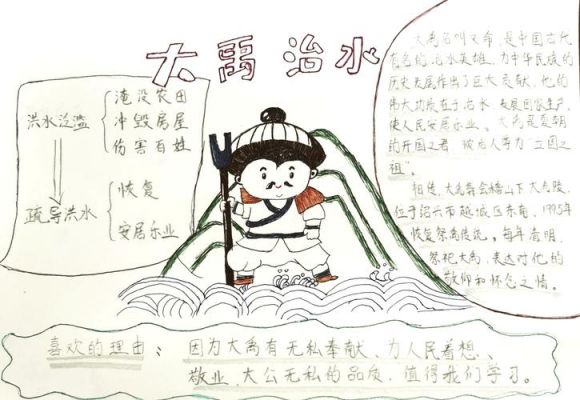 大禹治水
淹没农田
洪水泛滥
冲毁房屋
伤害百姓
恢复
疏导洪水
安居乐业
大禹名叫文命，是中国古代
有名的治水英雄，为中华民族的
历史发展作出了巨大贡献。他的
伟大功绩在于治水、发展国家生产，
使人民安居乐业。大禹是夏朝
的开国之君，被后人尊为"立国之
祖"。
相传，大禹葬会稽山下，大禹陵
位于绍兴市越城区东南，1995年
恢复祭禹传统。每年清明，
祭祀大禹，表达对他的
敬仰和怀念之情。
喜欢的理由：因为大禹有无私奉献、为人民着想、
敬业、大公无私的品质，值得我们学习。